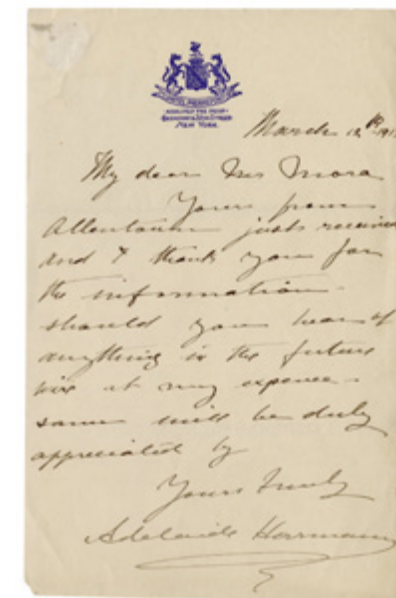 NEW YORK
March 12th 191
My dear Mrs Mora
Yours from
Allentown just received
and I thank you for
the information.
should you hear of
anything in the future
wire at my expence -
same will be duly
appreciated by
Yours Truly
Adelaide Herrmann